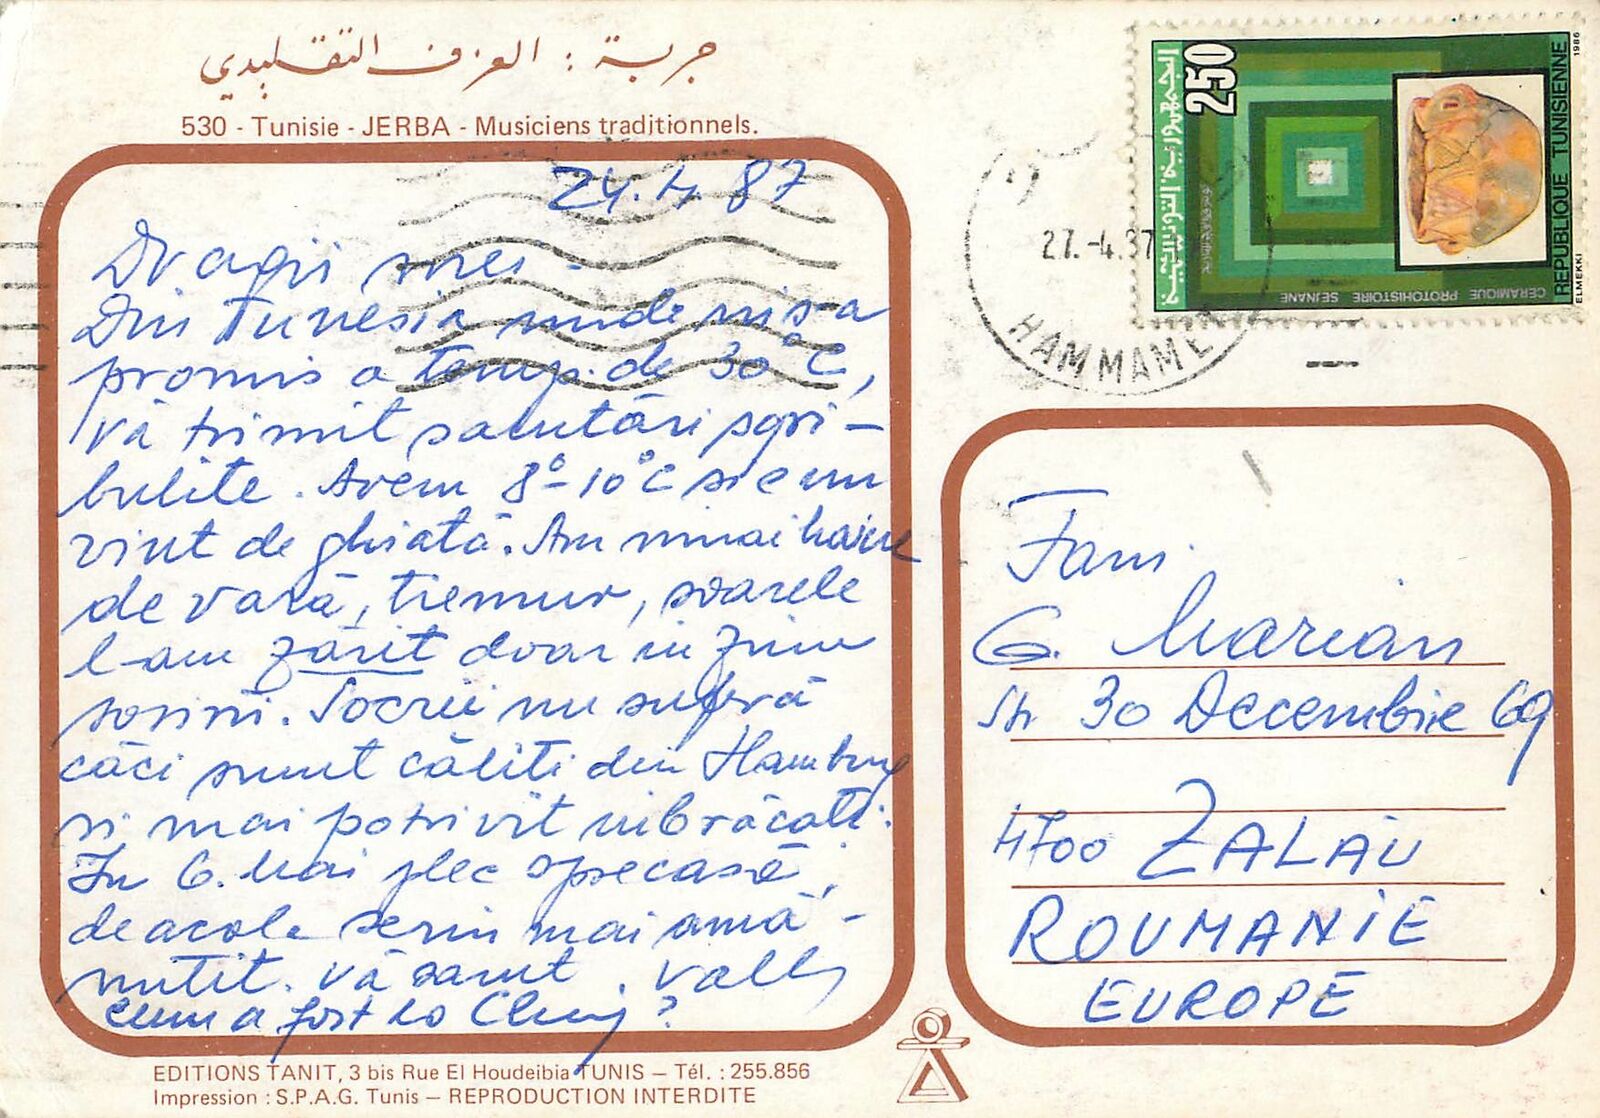 جربة : العزف التقليدي
530 - Tunisie - JERBA - Musiciens traditionnels.
24.4.87
Dragii mei -
Din Tunesia unde mi s-a
promis a temp. de 30°C,
vă trimit salutări sgri-
bulite. Avem 8°-10°C si e un
vint de ghiată. Am numai haine
de vară, tremur, soarele
l-am zărit doar in ziua
sosirii. Socrii nu suferă
căci sunt căliti din Hamburg
si mai potrivit imbrăcati.
In 6. Mai plec spre casă,
de acolo scriu mai amă-
nutit. Vă sarut. Vally
cum a fost la Cluj?
الجمهورية التونسية
250
REPUBLIQUE TUNISIENNE
1986
ELMEKKI
CERAMIQUE PROTOHISTOIRE SEJNANE
27.-4.87
HAMMAME
Fam.
G. Marian
Str 30 Decembrie 69
4700 ZALAU
ROUMANIE
EUROPE
EDITIONS TANIT, 3 bis Rue El Houdeibia TUNIS – Tél. : 255.856
Impression : S.P.A.G. Tunis – REPRODUCTION INTERDITE